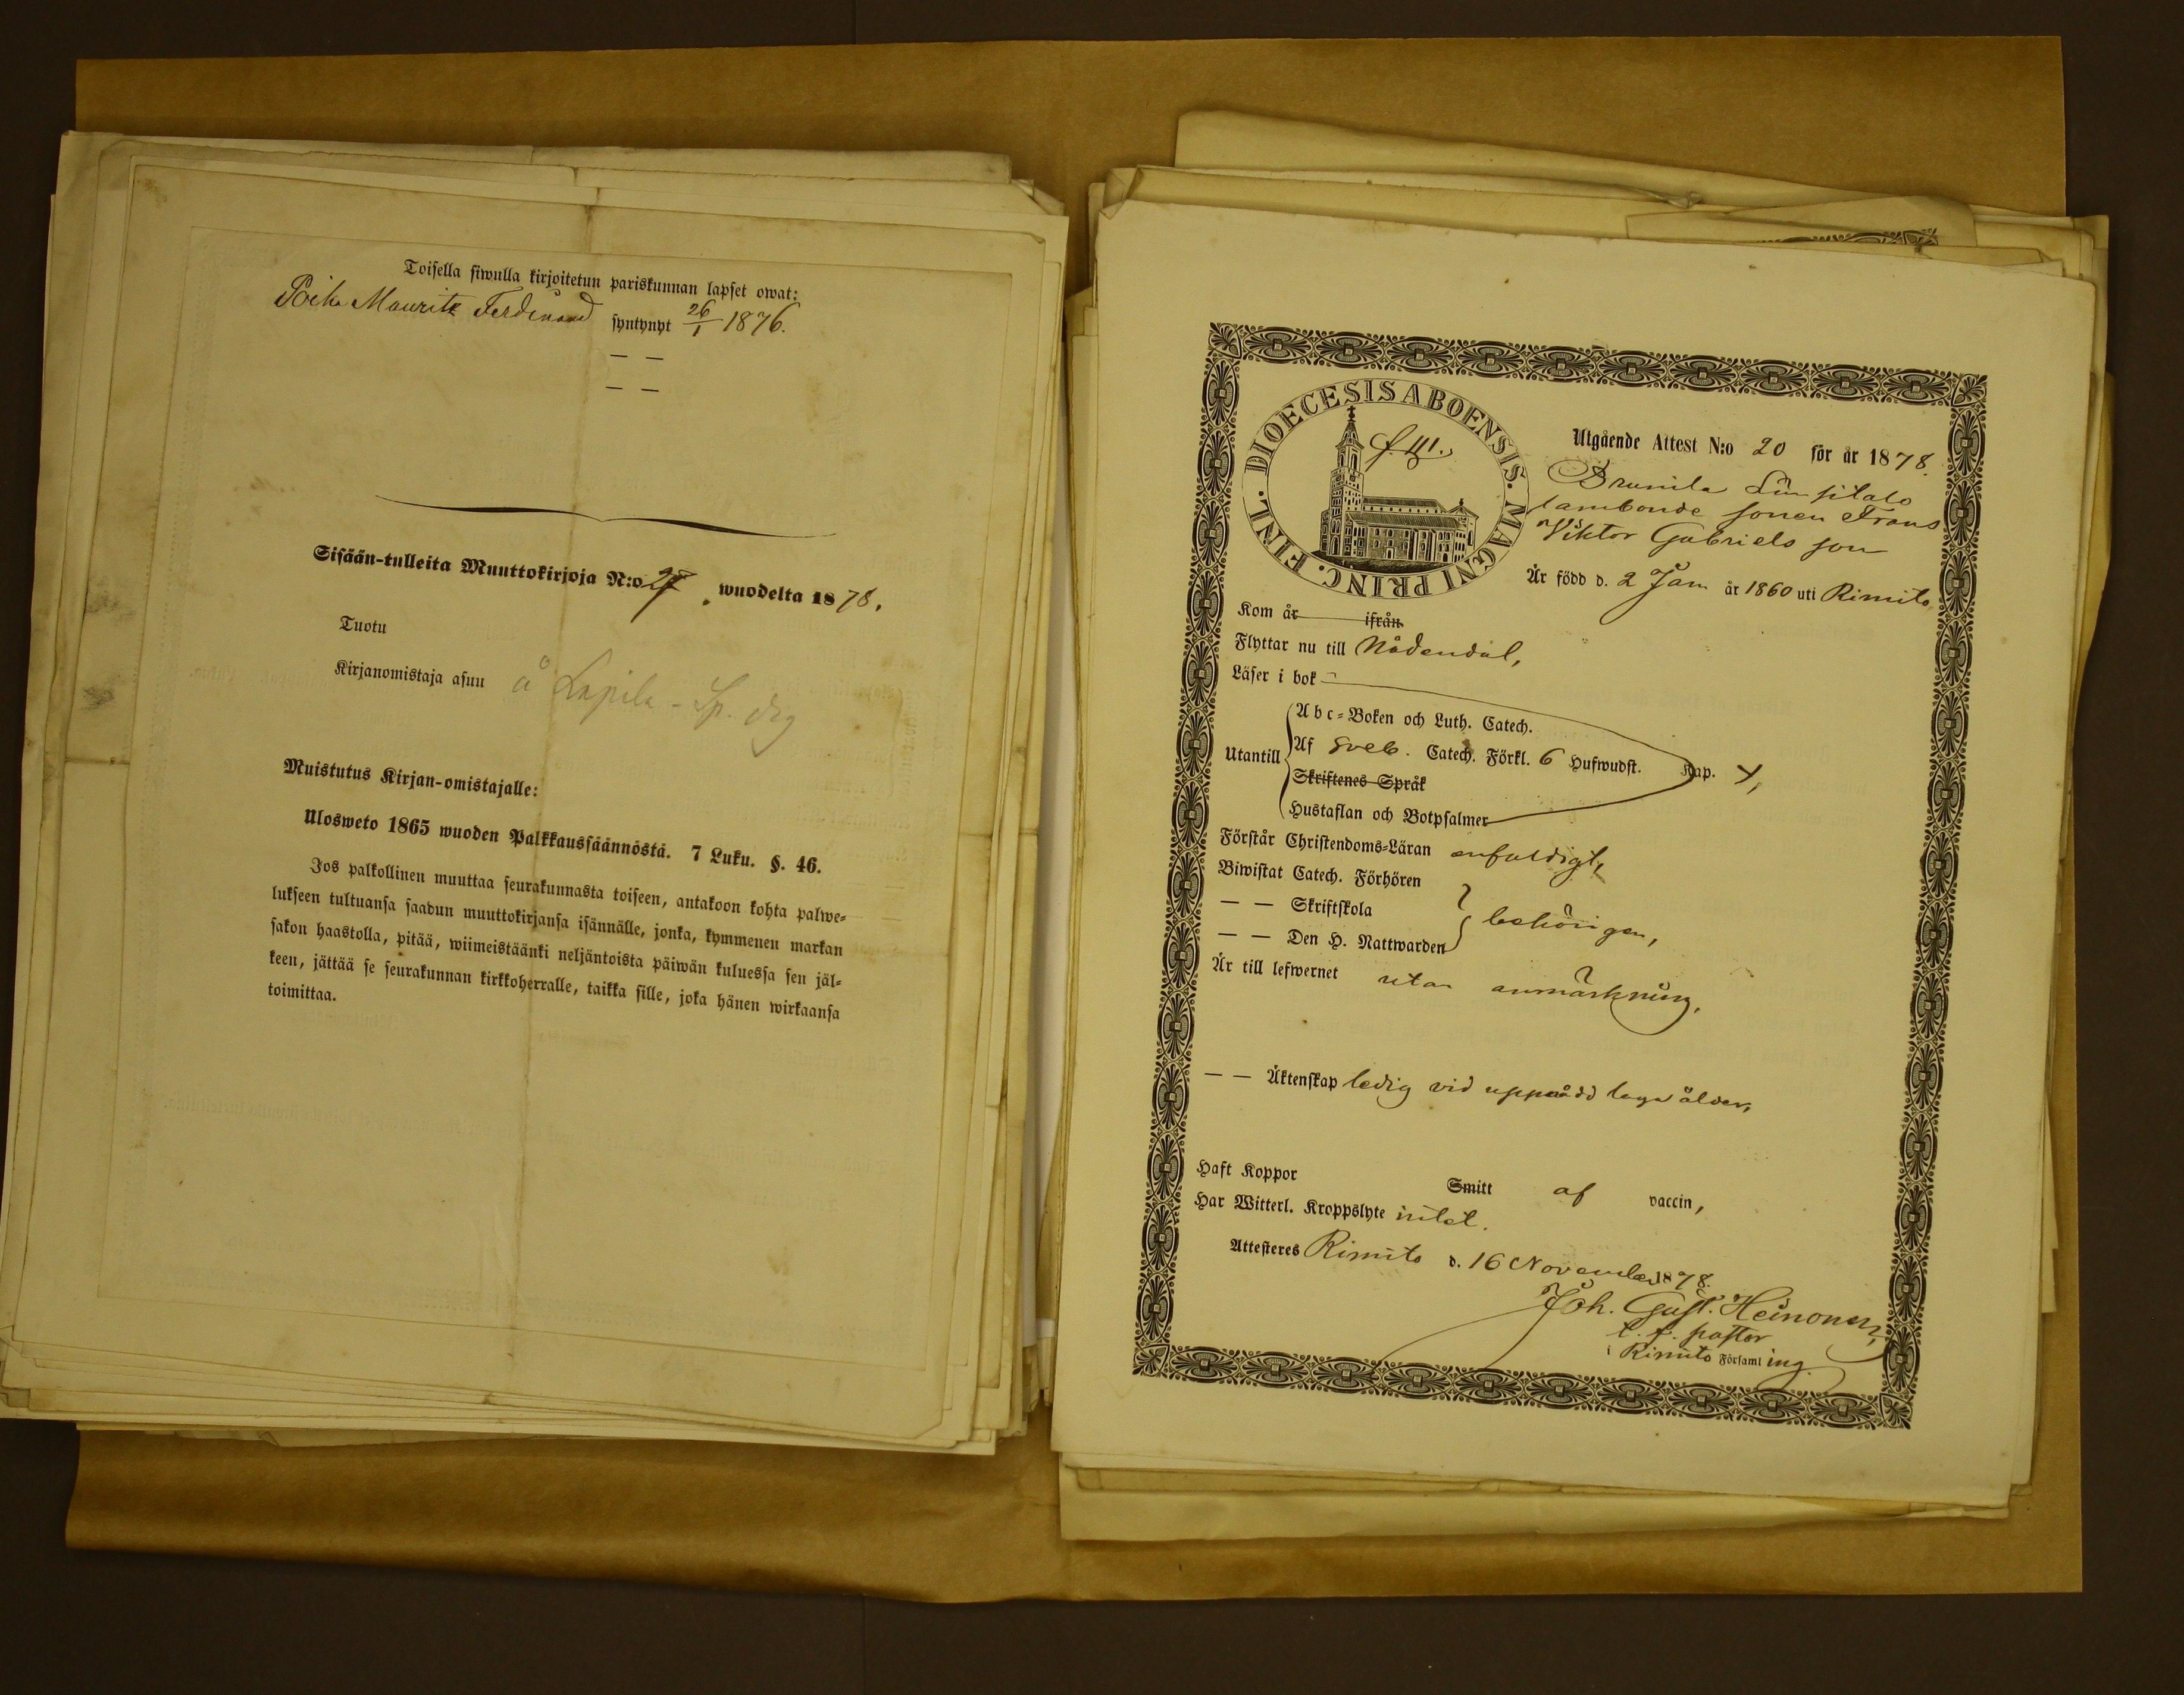 Toisella siwulla kirjoitetun pariskunnan lapset owat:
Poika Mauritz Ferdinand syntynyt 26/1 1876.
— —
— —
Sisään-tulleita Muuttokirjoja N:o 27 wuodelta 1878.
Tuotu
Kirjanomistaja asuu å Lapila - Sp. drg
Muistutus Kirjan-omistajalle:
Ulosweto 1865 wuoden Palkkaussäännöstä. 7 Luku. §. 46.
Jos palkollinen muuttaa seurakunnasta toiseen, antakoon kohta palwe-
lukseen tultuansa saadun muuttokirjansa isännälle, jonka, kymmenen markan
sakon haastolla, pitää, wiimeistäänki neljäntoista päiwän kuluessa sen jäl-
keen, jättää se seurakunnan kirkkoherralle, taikka sille, joka hänen wirkaansa
toimittaa.
DIOECESIS ABOENSIS. MAGNI PRINC. FINL.
Utgående Attest N:o 20 för år 1878.
Brunila
lambonde sonen Frans
Viktor Gabriels son
Är född d. 2 Jan år 1860 uti Rimito,
Kom år ifrån
Flyttar nu till Nådendal,
Läser i bok
Utantill
Abc-Boken och Luth. Catech.
Af Sveb. Catech. Förkl. 6 Hufwudst. Kap. X,
Skriftenes Språk
Hustaflan och Botpsalmer
Förstår Christendoms-Läran enfaldigt,
Biwistat Catech. Förhören
— — Skriftskola behörigen,
— — Den H. Nattwarden
Är till lefwernet utan anmärkning,
— — Äktenskap ledig vid uppnådd laga ålder,
Haft Koppor Smitt af vaccin,
Har Witterl. Kroppslyte intet.
Attesteres Rimito d. 16 November 1878.
Joh. Gust. Heinonen,
t. f. pastor
i Rimito Församling.